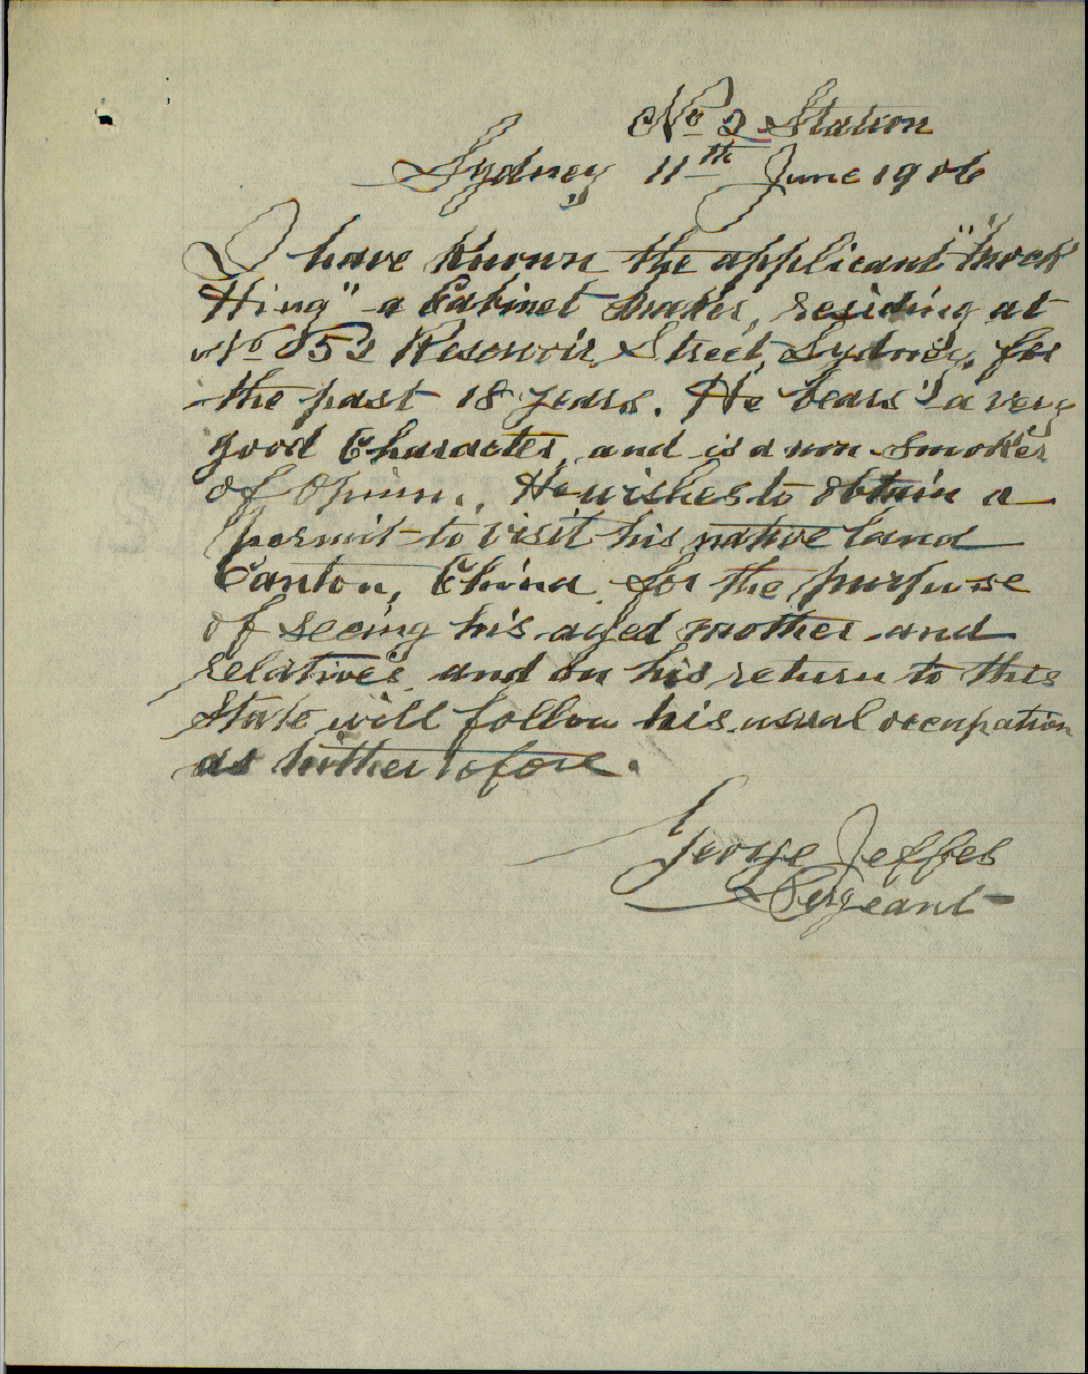 No 2 Station
Sydney 11th June 1906
I have known the applicant "
Hing" a Cabinet maker, residing at
No Reservoir Street, Sydney, for
the past 18 years. He bears a very
good Character, and is a non Smoker
of Opium. He wishes to obtain a
permit to visit his native land
Canton, China for the purpose
of seeing his aged mother and
relatives and on his return to this
State will follow his usual occupation
as hitherto fore.
George Jeffes
Sergeant